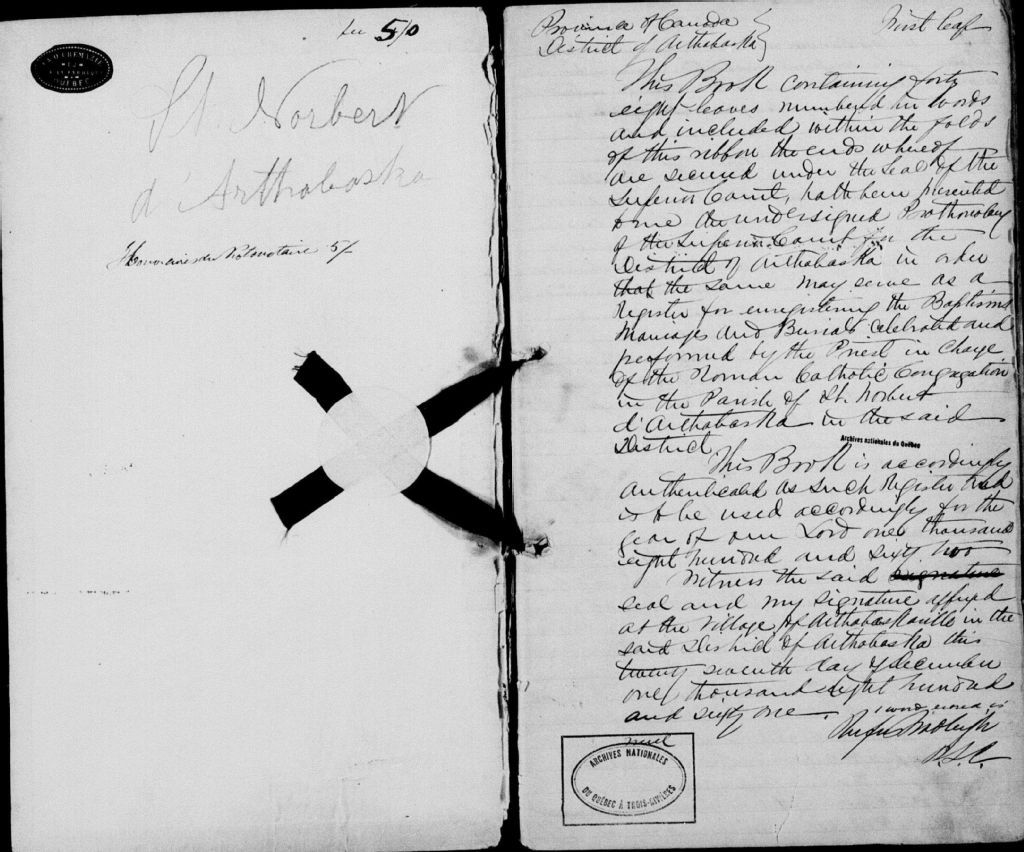 5/0
QUÉBEC
St. Norbert
d'Arthabaska
Honoraires du Protonotaire 5/
Province of Canada
District of Arthabaska
First leaf
This Book containing forty
eight leaves numbered in words
and included within the folds
of this ribbon the ends whereof
are secured under the Seal of the
Superior Court, hath been presented
to me the undersigned Prothonotary
of the Superior Court for the
District of Arthabaska in order
that the same may serve as a
Register for enregistering the Baptisms
Marriages and Burials celebrated and
performed by the Priest in Charge
of the Roman Catholic Congregation
in the Parish of St. Norbert
d'Arthabaska in the said
District.
Archives nationales du Québec
This Book is accordingly
authenticated as such Register and
is to be used accordingly for the
year of our Lord one thousand
eight hundred and sixty two
Witness the said signature
seal and my signature affixed
at the Village of Arthabaskaville in the
said District of Arthabaska this
twenty seventh day of December
one thousand eight hundred
and sixty one.
1 word erased is
null
Rufus Wadleigh
P.S.C.
ARCHIVES NATIONALES
DU QUÉBEC À TROIS-RIVIÈRES